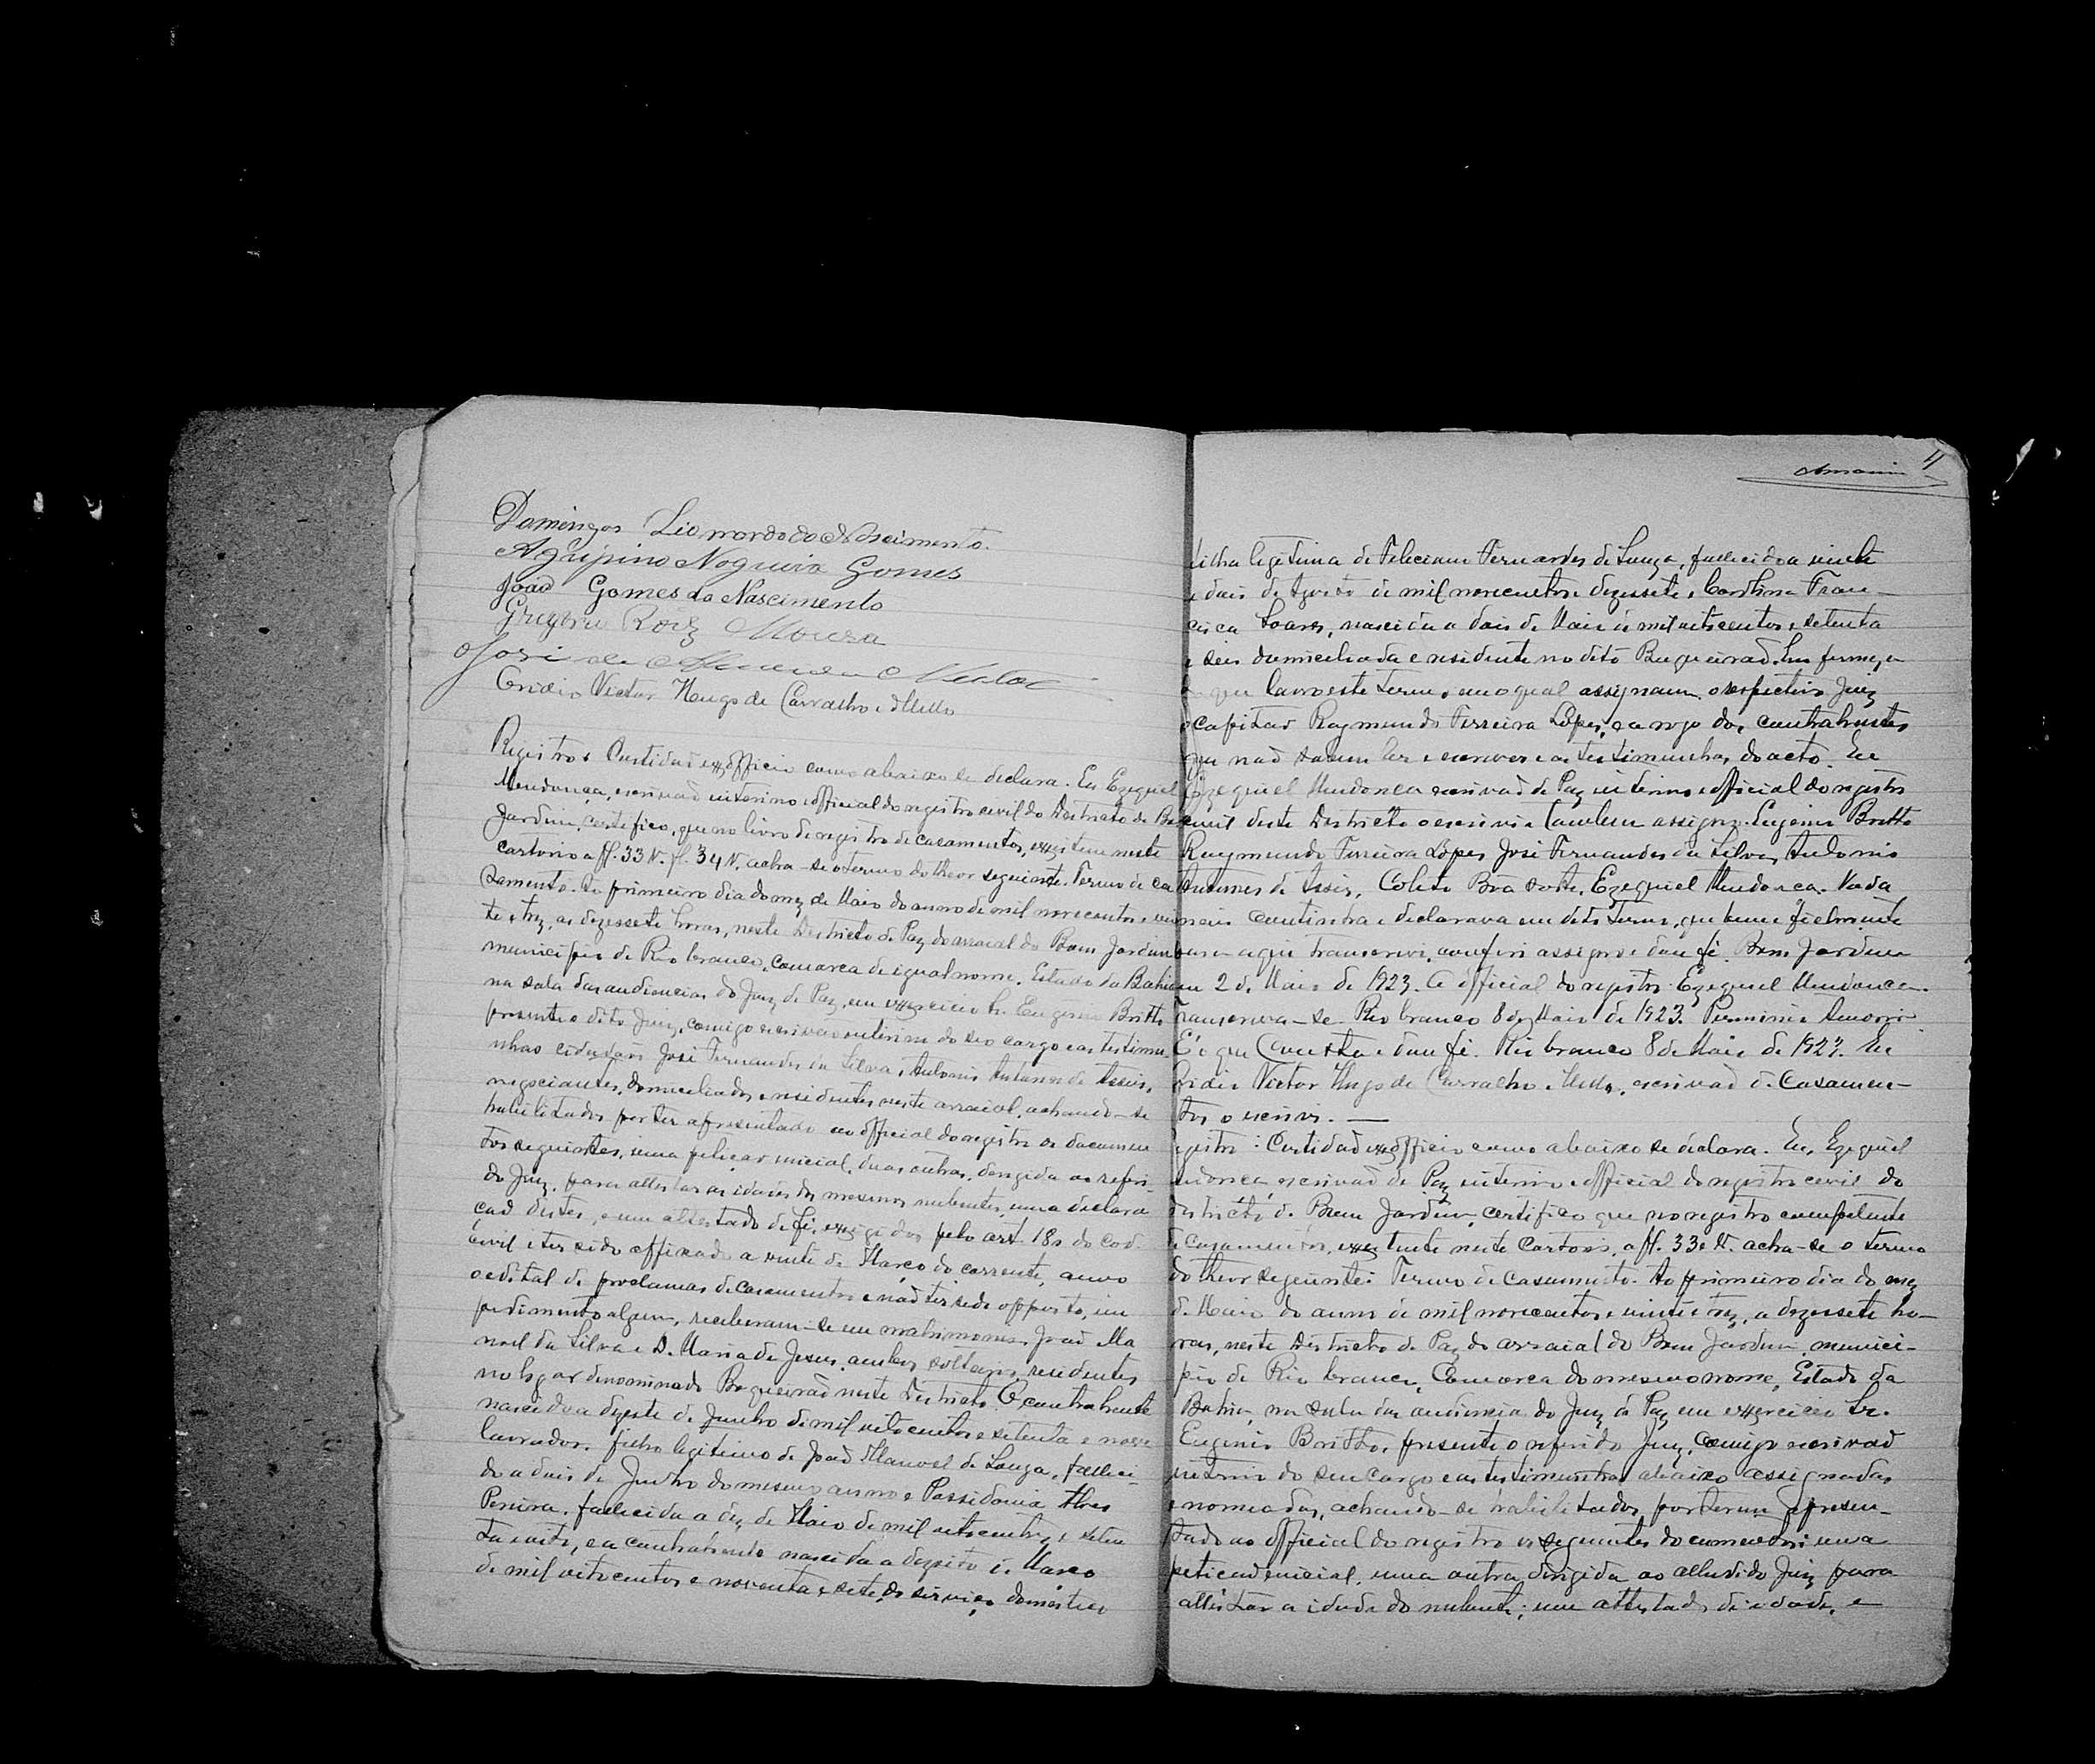 Domingos Lionordo do Nascimento.
Agripino Nogueira Gomes
João Gomes do Nascimento
Gregorio Roiz Moura
José de
Ovidio Victor Hugo de Carvalho e Mello
Registro: Certidaõ exofficio como abaixo se declara. Eu Ezequiel
Mendonça, escrivaõ interino e official do registro civil do Destricto de Bom
Jardim, certifico, que no livro de registro de casamentos, existem neste
cartorio a ff. 33 V. fl. 34 V. acha-se o termo do theor seguinte. Termo de ca
samento. Ao primeiro dia do mez de Maio do anno de mil novecentos e vin
te e trez, as dezessete horas, neste Destricto de Paz do arraial do Bom Jardim
municipio de Rio branco, comarca de igual nome, Estado da Bahia
na sala das audiencias do Juiz de Paz, em exercicio Sr. Eugenio Britto
presente o dito Juiz, comigo escrivaõ interino do seo cargo e as testimu
nhas cidadaõs José Fernandes da Silva e Antonio Antunes de Assis,
negociantes, domiciliados e residentes neste arraial, achando-se
habilitados por ter apresentado ao official do registro os documen
tos seguintes, uma petiçaõ inicial, duas outras, dirigida ao referi-
do Juiz, para attestar as idades dos mesmos nubentes, uma declara
caõ destes, e um attestado de fé, exegidos pelo art. 180 do Cod.
Civil e ter sido affixado a vinte de Março do corrente, anno
o edital de proclamas de casamentos e naõ ter sido opposto, im
pedimento algum, receberam-se em matrimonio Joaõ Ma
noel da Silva e D. Maria de Jesus, ambos solteiros, residentes
no lugar denominado Boqueiraõ neste Destricto. O contrahente
nascido a dezeste de Junho de mil oitocentos e setenta e nove
lavrador, filho legitimo de Joaõ Manoel de Souza, falleci-
do a dois de Junho do mesmo anno e Possidonia
Pereira, fallecida a dez de Maio de mil oitocentos e seten
ta e oito, e a contrahente nascida a dezoito de Março
de mil oitocentos e noventa e sete, de serviço domestico
4
Amorim
filha legitima de Feliciano Fernandes de Souza, fallecido a vinte
e dois de Agosto de mil novecentos e dezessete e Fran-
cisca Soares, nascida a dois de Maio de mil oitocentos e setenta
e seis domiciliada e residente no dito Boqueiraõ. Em firmeza
do que lavro este termo, em o qual assignam o respectivo Juiz
o capitaõ Raymundo Ferreira Lopes, a rogo dos contrahentes
que naõ sabem ler e escrever e as testimunhas do acto. Eu
Ezequiel Mendonca escrivaõ de Paz interino e official do registro
civil deste Destricto o escrivi e tambem assigno. Eugenio Britto
Raymundo Ferreira Lopes, José Fernandes da Silva, Antonio
Antunes de Assis, Coleto Bôa sorte, Ezequiel Mendonca. Nada
mais continha e declarava em dito termo, que bem e fielmente
aqui transcrevi, conferi assigno e dou fé. Bom Jardim
em 2 de Maio de 1923. O official do registro Ezequiel Mendonca.
Transcreva-se. Rio branco 8 de Maio de 1923. Amorim
E' o que Consta e dou fé. Rio branco 8 de Maio de 1923. Eu
Ovidio Victor Hugo de Carvalho e Mello, escrivaõ de Casamen-
tos o escrivi. —
Registro: Certidaõ exofficio como abaixo se declara. Eu, Ezequiel
Mendonca escrivaõ de Paz interino e official do registro civil do
destricto de Bom Jardim, certifico que no registro competente
de casamentos, existente neste Cartorio, a ff. 33 e V. acha-se o termo
do theor seguinte: Termo de casamento. Ao primeiro dia do mez
de Maio do anno de mil novecentos e vinte e trez, a dezessete ho-
ras, neste Destricto de Paz do arraial do Bom Jardim, munici-
pio de Rio branco, Comarca do mesmo nome, Estado da
Bahia, na sala das audiencia do Juiz de Paz em exercicio Sr.
Eugenio Britto, presente o referido Juiz, comigo escrivaõ
interino do seu cargo e as testimunhas abaixo assignadas
e nomeadas, achando-se habilitados, por terem apresen-
tado ao official do registro os seguintes documentos: uma
peticaõ inicial, uma outra dirigida ao alludido Juiz para
attestar a idade do nubente; um attestado de idade, e